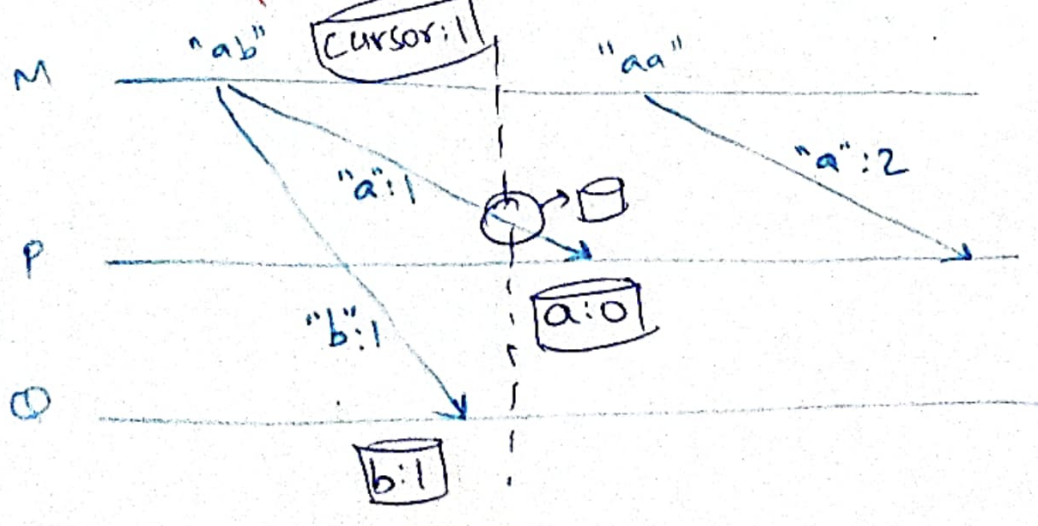 "ab"
cursor:1
"aa"
M
"a":1
"a":2
P
a:0
"b":1
Q
b:1